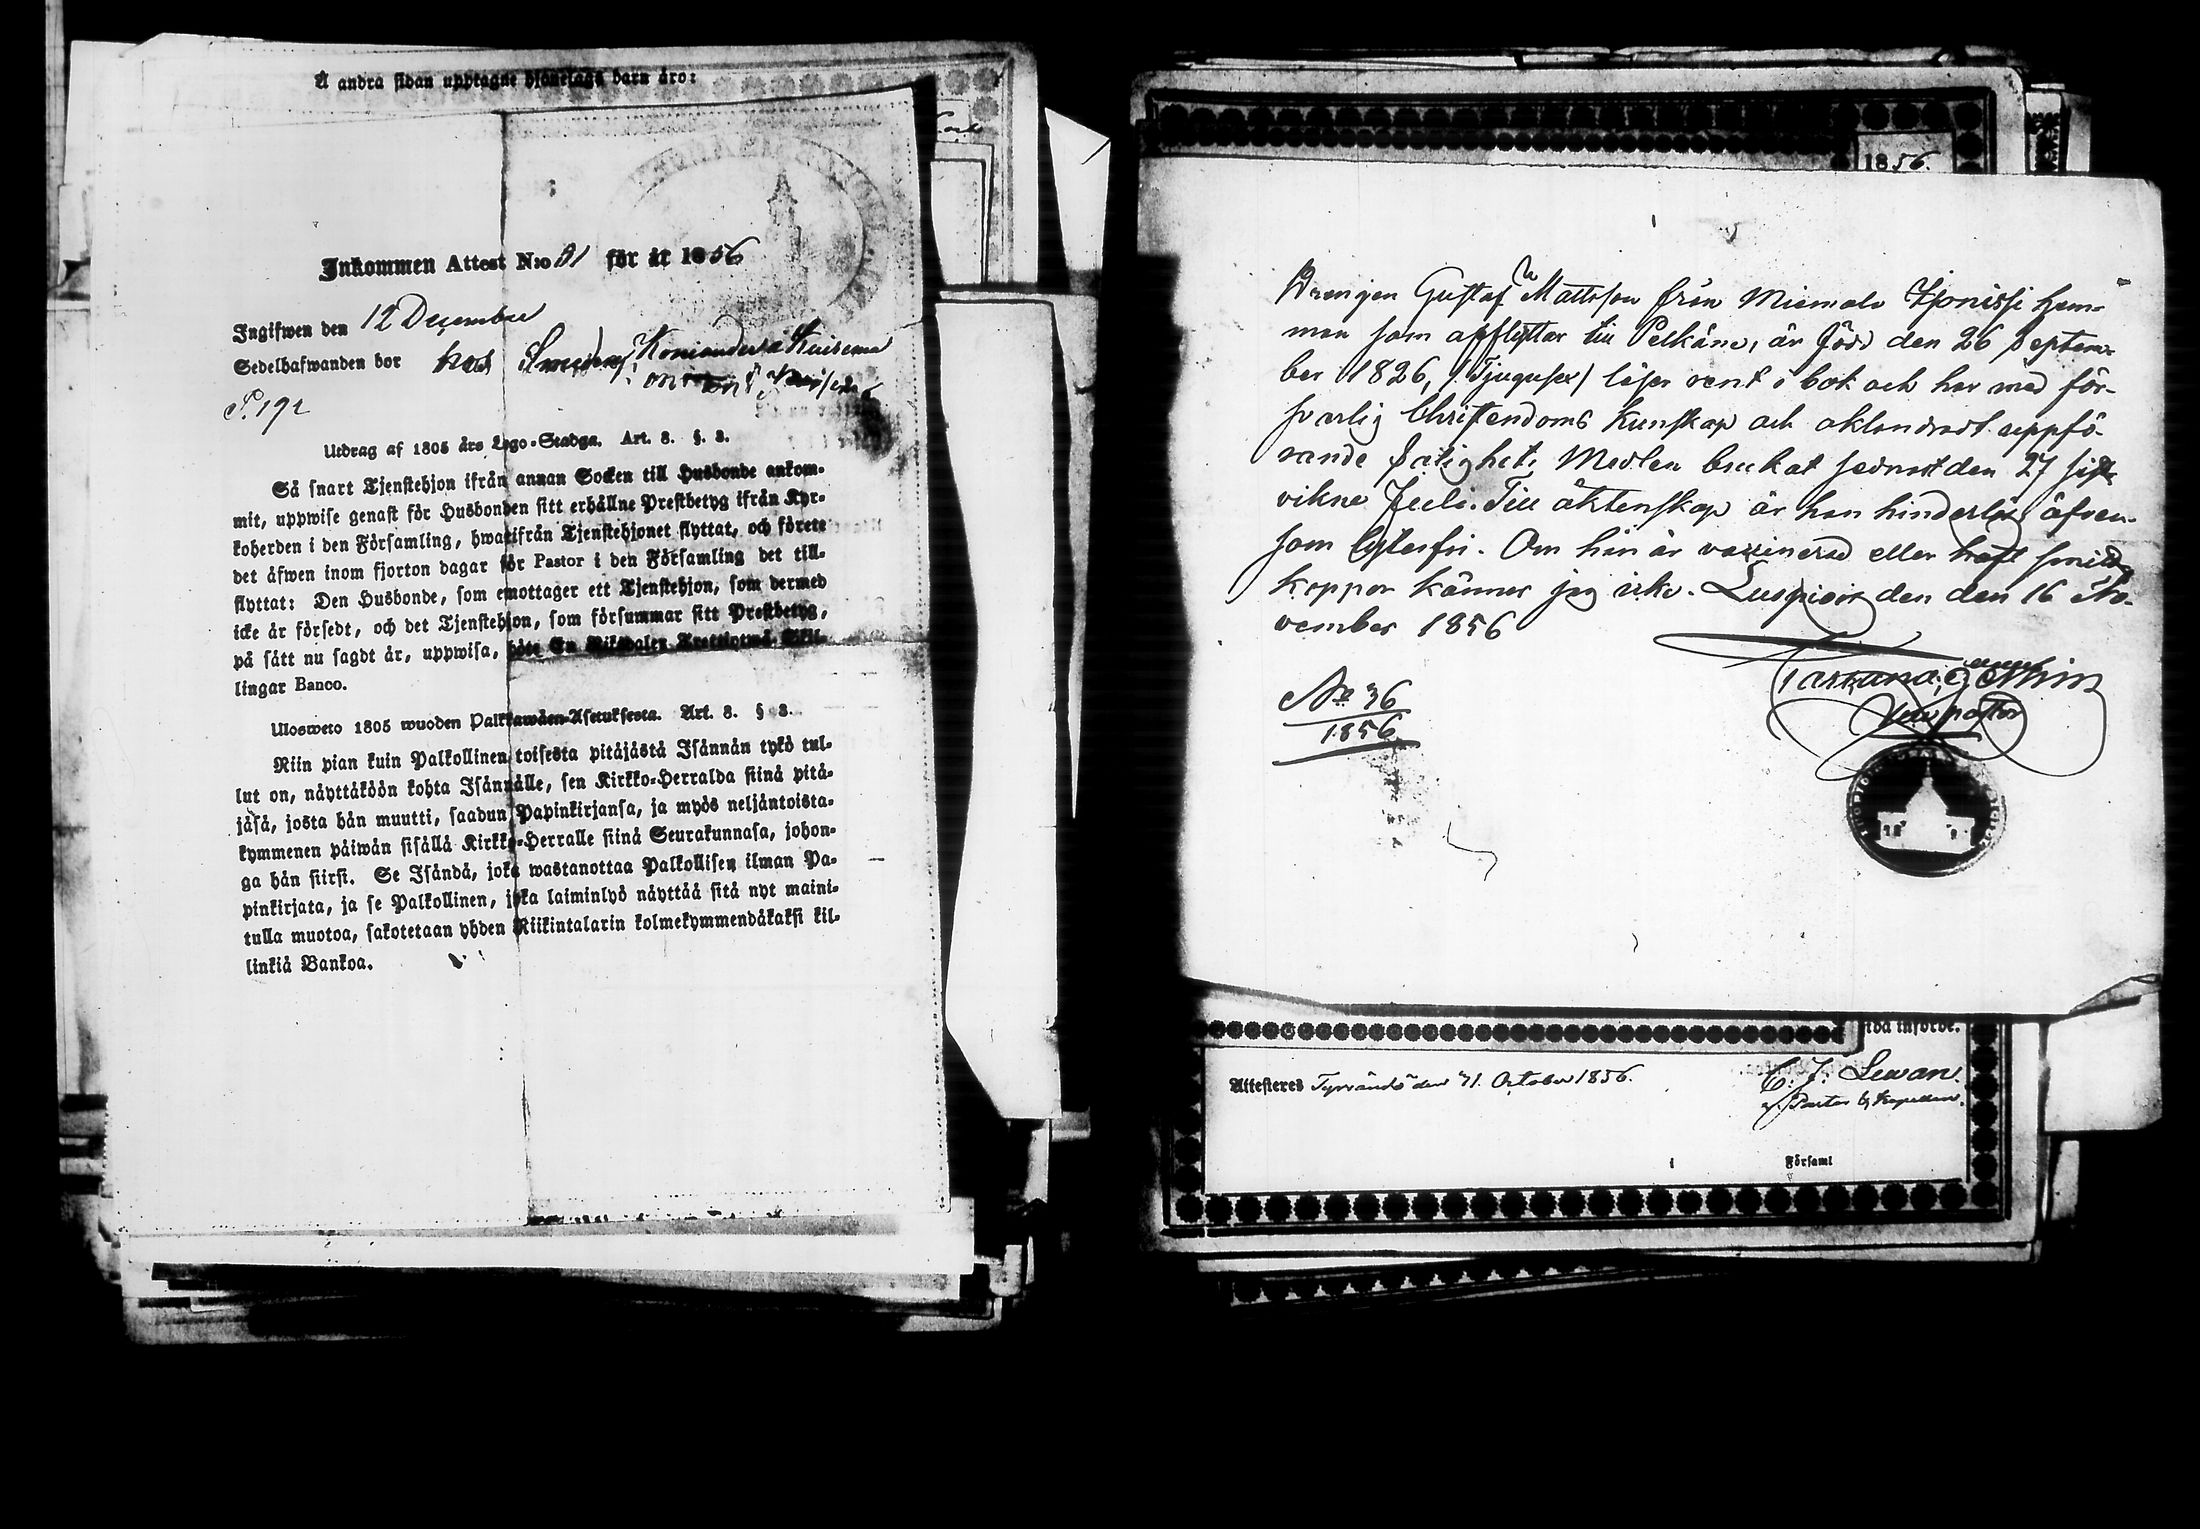 Å andra sidan upptagne hjonelags barn äro:
Inkommen Attest N:o 91 för år 1856
Ingifwen den 12 December
Sedelhafwanden bor hos Smeden Koniander i Kuisema
P. 192
Utdrag af 1805 års Lego-Stadga. Art. 8. §. 3.
Så snart Tjenstehjon ifrån annan Socken till Husbonde ankom-
mit, uppwise genast för Husbonden sitt erhållne Prestbetyg ifrån Kyr-
koherden i den Församling, hwarifrån Tjenstehjonet flyttat, och förete
det äfwen inom fjorton dagar för Pastor i den Församling det till-
flyttat: Den Husbonde, som emottager ett Tjenstehjon, som dermed
icke är försedt, och det Tjenstehjon, som försummar sitt Prestbetyg,
på sätt nu sagdt är, uppwisa, böte En Riksdaler Trettiotwå Skil-
lingar Banco.
Ulosweto 1805 wuoden Palkkawäen-Asetuksesta. Art. 8. § 3.
Niin pian kuin Palkollinen toisesta pitäjästä Isännän tykö tul-
lut on, näyttäköön kohta Isännälle, sen Kirkko-Herralda siinä pitä-
jäsä, josta hän muutti, saadun Papinkirjansa, ja myös neljäntoista-
kymmenen päiwän sisällä Kirkko-Herralle siinä Seurakunnasa, johon-
ga hän siirsi. Se Isändä, joka wastanottaa Palkollisen ilman Pa-
pinkirjata, ja se Palkollinen, joka laiminlyö näyttää sitä nyt maini-
tulla muotoa, sakotetaan yhden Riikintalarin kolmekymmendäkaksi kil-
linkiä Bankoa.
1856.
Drengen Gustaf Mattsson från Miemala Hjonissi hem-
man som afflyttar till Pelkäne, är född den 26 Septem-
ber 1826, /Tjugusex/ läser rent i bok och har med för-
svarlig Christendoms Kunskap och oklandradt uppfö-
rande Salighets Medlen brukat sednast den 27 sist-
vikne Juli. Till äktenskap är han hinderlös äfven-
som lyterfri. Om han är vaccinerad eller haft smitt-
koppor känner jag icke. Luopiois den den 16 No-
vember 1856
No 36
1856
Vice pastor
ida införde.
Attesteres Tyrväntö den 31. October 1856.
C. J. Lewan.
v. Pastor & Kapellan.
Församl